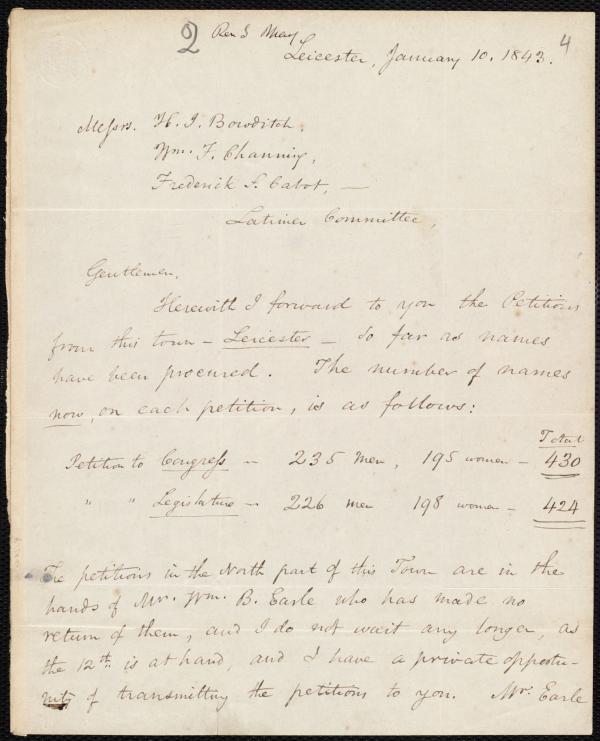 2 Rev S May 4
Leicester, January 10. 1843.
Messrs. H. I. Bowditch,
Wm. F. Channing,
Frederick S. Cabot, —
Latimer Committee,
Gentlemen,
Herewith I forward to you the Petitions
from this town – Leicester – so far as names
have been procured. The number of names
now, on each petition, is as follows:
Total
Petition to Congress — 235 men, 195 women — 430
" " Legislature — 226 men 198 women — 424
The petitions in the North part of this Town are in the
hands of Mr. Wm. B. Earle who has made no
return of them, and I do not wait any longer, as
the 12th. is at hand, and I have a private opportu-
nity of transmitting the petitions to you. Mr. Earle